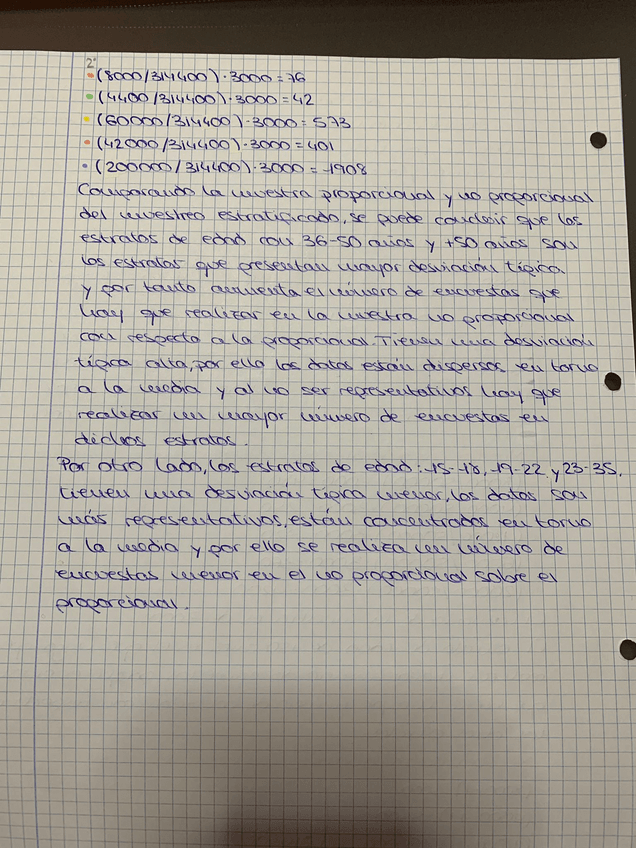 2º
(8000/314400)·3000=76
(4400/314400)·3000=42
(60000/314400)·3000=573
(42000/314400)·3000=401
(200000/314400)·3000=1908
Comparando la muestra proporcional y no proporcional
del muestreo estratificado, se puede concluir que los
estratos de edad con 36-50 años y +50 años son
los estratos que presentan mayor desviación típica
y por tanto aumenta el número de encuestas que
hay que realizar en la muestra no proporcional
con respecto a la proporcional. Tienen una desviación
típica alta, por ello los datos están dispersos en torno
a la media y al no ser representativos hay que
realizar un mayor número de encuestas en
dichos estratos.
Por otro lado, los estratos de edad: 15-18, 19-22 y 23-35,
tienen una desviación típica menor, los datos son
más representativos, están concentrados en torno
a la media y por ello se realiza un número de
encuestas menor en el no proporcional sobre el
proporcional.